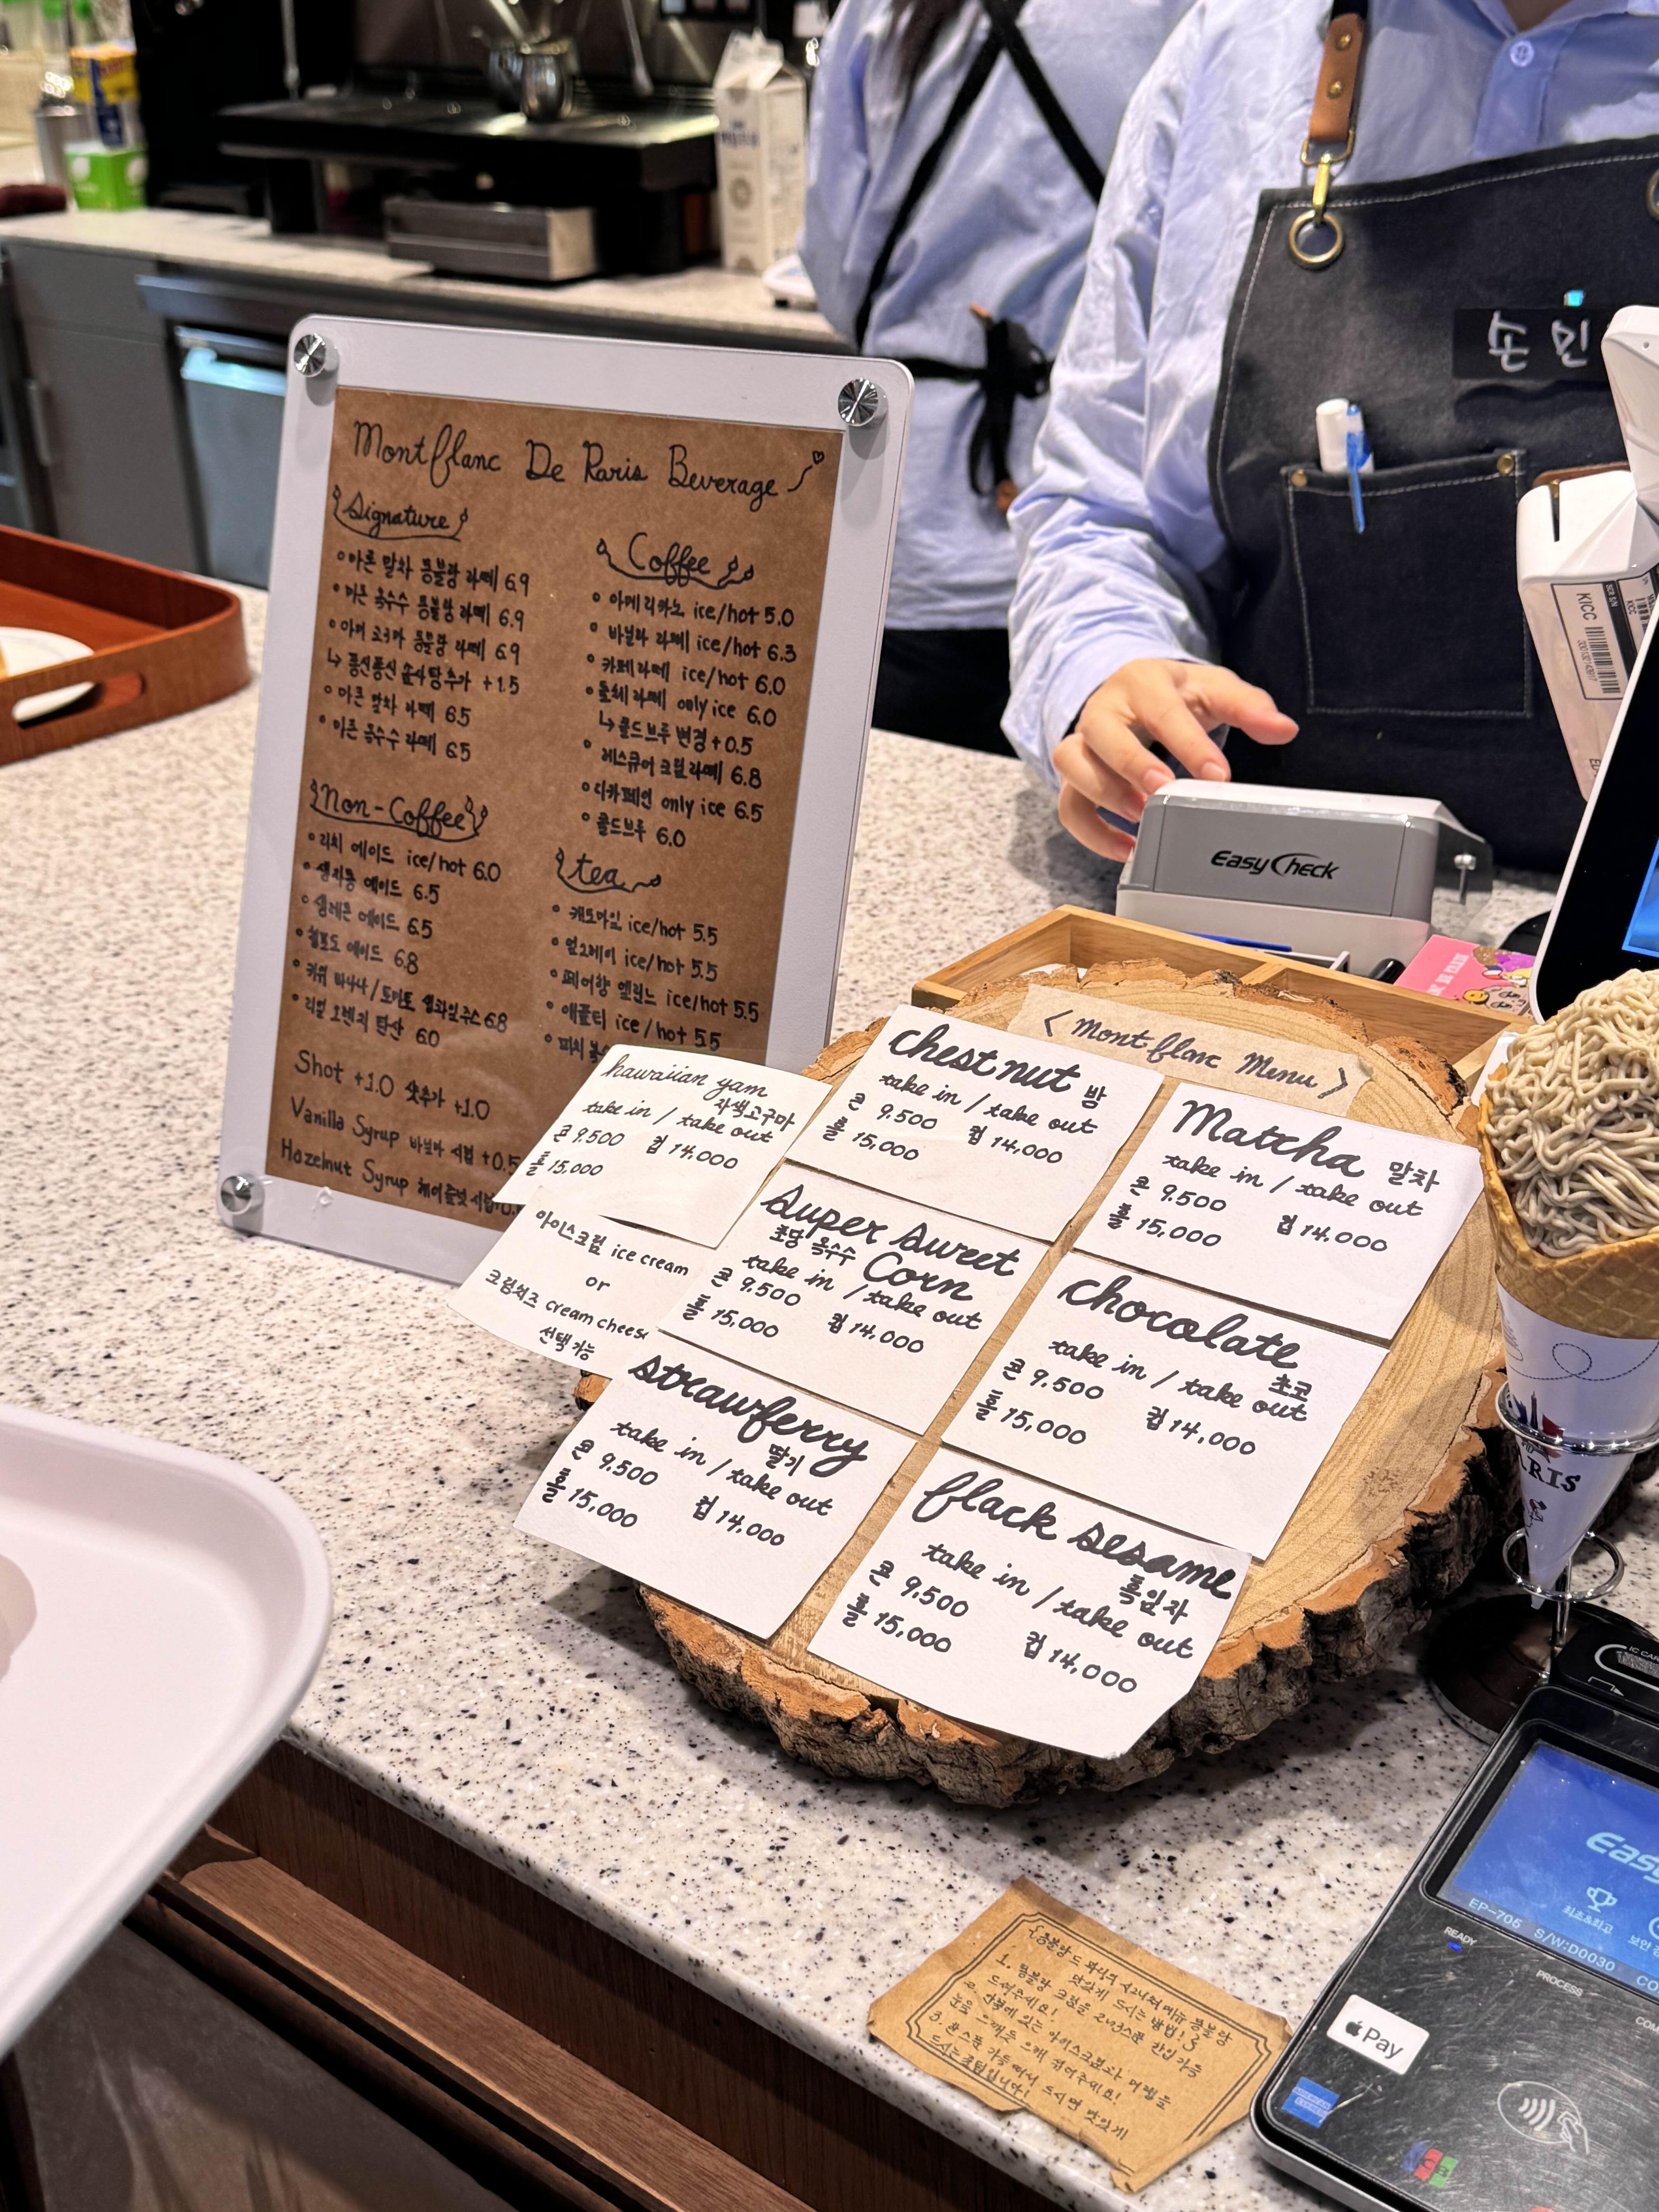 Montblanc De Paris Beverage
Signature
마론 말차 몽블랑 라떼 6.9
마론 옥수수 몽블랑 라떼 6.9
몽블랑 라떼 6.9
↳ 솜사탕추가 +1.5
마론 말차 라떼 6.5
마론 옥수수 라떼 6.5
Non-Coffee
리치 에이드 ice/hot 6.0
생자몽 에이드 6.5
생레몬 에이드 6.5
청포도 에이드 6.8
키위 바나나/토마토 생과일주스 6.8
리얼 오렌지 탄산 6.0
Shot +1.0 샷추가 +1.0
Vanilla Syrup 바닐라 시럽 +0.5
Hazelnut Syrup 헤이즐넛 시럽
Coffee
아메리카노 ice/hot 5.0
바닐라 라떼 ice/hot 6.3
카페라떼 ice/hot 6.0
돌체라떼 only ice 6.0
↳ 콜드브루 변경 +0.5
레스큐어 크림라떼 6.8
디카페인 only ice 6.5
콜드브루 6.0
tea
캐모마일 ice/hot 5.5
얼그레이 ice/hot 5.5
페어향 ice/hot 5.5
애플티 ice/hot 5.5
손 민
EasyCheck
KICC
<Montblanc Menu>
hawaiian yam
자색고구마
take in / take out
콘 9.500 컵 14,000
홀 15,000
아이스크림 ice cream
or
크림치즈 cream cheese
선택가능
chestnut 밤
take in / take out
콘 9.500 컵 14,000
홀 15,000
Matcha 말차
take in / take out
콘 9.500 컵 14,000
홀 15,000
Super Sweet
초당 옥수수 Corn
take in / take out
콘 9.500 컵 14,000
홀 15,000
chocolate
초코
take in / take out
콘 9.500 컵 14,000
홀 15,000
strawberry
딸기
take in / take out
콘 9.500 컵 14,000
홀 15,000
black sesame
흑임자
take in / take out
콘 9.500 컵 14,000
홀 15,000
ARIS
맛있게 드시는 방법!
1. 몽블랑 크림을 2~3스푼
드셔주세요!
Easy
EP-705 S/W:D0030
READY
PROCESS
Pay
AMERICAN EXPRESS